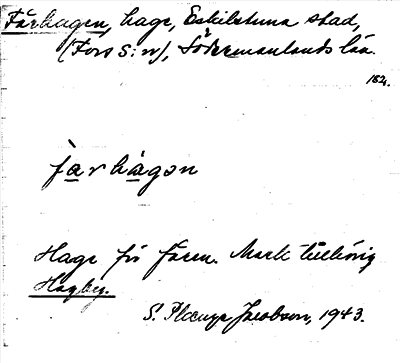 Fårhagen, hage, Eskilstuna stad,
(Fors s:n), Södermanlands län.
182.
fa̲rha̲gən
Hage för fåren. Mark tillhörig
Hagby.
S. Plænge Jacobson, 1943.